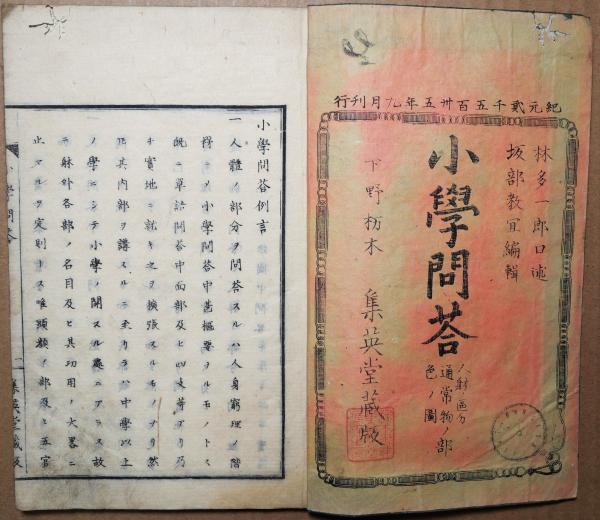 紀元貳千五百卅五年九月刊行
林多一郎口述
坂部教宜編輯
小學問荅
人躰ノ區分
通常物ノ部
色ノ圖
下野栃木 集英堂蔵版
小學問荅例言
一人體ノ部分ヲ問荅スルハ人身窮理ノ階
梯ニテ小學問荅中甚樞要ナルモノトス
既ニ單語問荅中面部及ヒ四支等アリ乃
チ實地ニ就キ之ヲ擴張スルモノナリ然
𪜈其内部ヲ講スルニ至リテハ中學以上
ノ學ニシテ小學ノ関スル處ニアラス故
ニ躰外各部ノ名目及ヒ其功用ノ大畧ニ
止マルヲ定則トス唯頭顔ノ部及ヒ五官
小學問荅 一 集英堂蔵版